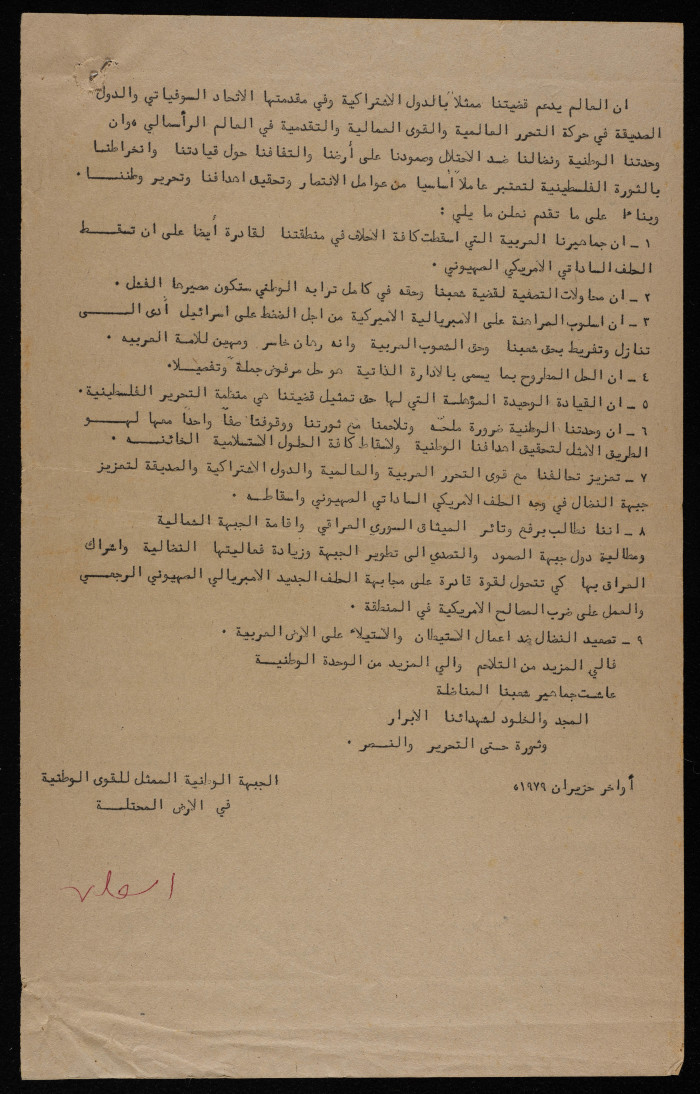 ان العالم يدعم قضيتنا ممثلاً بالدول الاشتراكية وفي مقدمتها الاتحاد السوفياتي والدول
الصديقة في حركة التحرر العالمية والقوى العمالية والتقدمية في العالم الرأسمالي ٠ وان
وحدتنا الوطنية ونضالنا ضد الاحتلال وصمودنا على أرضنا والتفافنا حول قيادتنا وانخراطنا
بالثورة الفلسطينية لتعتبر عاملاً أساسيا من عوامل الانتصار وتحقيق اهدافنا وتحرير وطننـــا ٠
وبناءً على ما تقدم نعلن ما يلي :
١ ـ ان جماهيرنا العربية التي اسقطت كافة الاحلاف في منطقتنا لقادرة أيضا على ان تسقــط
الحلف الساداتي الامريكي الصهيوني ٠
٢ ـ ان محاولات التصفية لقضية شعبنا وحقه في كامل ترابه الوطني ستكون مصيرها الفشل ٠
٣ ـ ان اسلوب المراهنة على الامبريالية الاميركية من اجل الضغط على اسرائيل أدى الـــى
تنازل وتفريط بحق شعبنا وحق الشعوب العربية وانه رهان خاسر ومهين للامة العربيه ٠
٤ ـ ان الحل المطروح بما يسمى بالادارة الذاتية هو حل مرفوض جملة وتفصيلا ٠
٥ ـ ان القيادة الوحيدة المؤهلة التي لها حق تمثيل قضيتنا هي منظمة التحرير الفلسطينية ٠
٦ ـ ان وحدتنا الوطنية ضرورة ملحّه وتلاحمنا مع ثورتنا ووقوفنا صفاً واحداً معها لهــو
الطريق الامثل لتحقيق اهدافنا الوطنية ولاسقاط كافة الحلول الاستسلامية الخائنــه ٠
٧ ـ تعزيز تحالفنا مع قوى التحرر العربية والعالمية والدول الاشتراكية والصديقة لتعزيز
جبهة النضال في وجه الحلف الامريكي الساداتي الصهيوني واسقاطــه ٠
٨ ـ اننا نطالب برفع وتائر الميثاق السوري العراقي واقامة الجبهة الشمالية
ومطالبة دول جبهة الصمود والتصدي الى تطوير الجبهة وزيادة فعاليتها النضالية واشراك
العراق بها كي تتحول لقوة قادرة على مجابهة الحلف الجديد الامبريالي الصهيوني الرجعــي
والعمل على ضرب المصالح الامريكية في المنطقة ٠
٩ ـ تصعيد النضال ضد اعمال الاستيطان والاستيلاء على الارض العربية ٠
فالي المزيد من التلاحم والي المزيد من الوحدة الوطنيــة
عاشت جماهير شعبنا المناضلة
المجد والخلود لشهدائنا الابرار
وثورة حتى التحرير والنــصر ٠
أواخر حزيران ١٩٧٩ه
الجبهة الوطنية الممثل للقوى الوطنية
في الارض المحتلــة